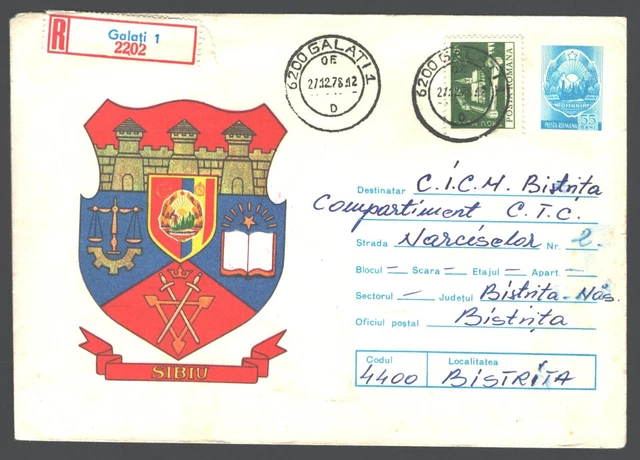 R
Galați 1
2202
6200 GALAȚI 1
OE
27.12.78.12
D
6200 G
27.12.78.12
D
POSTA ROMANA
POSTA ROMANA
55
BANI
Destinatar C.I.C.M. Bistrița
Compartiment C.T.C.
Strada Narciselor Nr. 2.
Blocul — Scara — Etajul — Apart. —
Sectorul — Județul Bistrița-Năs.
Oficiul poștal Bistrița
Codul Localitatea
4400 BISTRIȚA
SIBIU